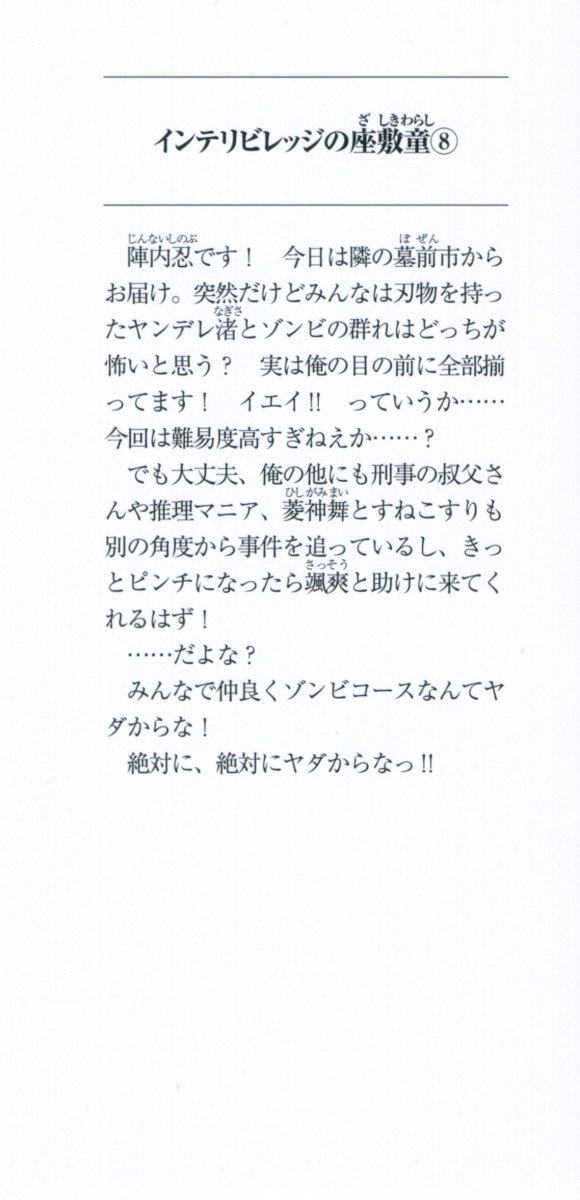 インテリビレッジの座敷童⑧
陣内忍です！　今日は隣の墓前市から
お届け。突然だけどみんなは刃物を持っ
たヤンデレ渚とゾンビの群れはどっちが
怖いと思う？　実は俺の目の前に全部揃
ってます！　イエイ!!　っていうか……
今回は難易度高すぎねえか……？
でも大丈夫、俺の他にも刑事の叔父さ
んや推理マニア、菱神舞とすねこすりも
別の角度から事件を追っているし、きっ
とピンチになったら颯爽と助けに来てく
れるはず！
……だよな？
みんなで仲良くゾンビコースなんてヤ
ダからな！
絶対に、絶対にヤダからなっ!!